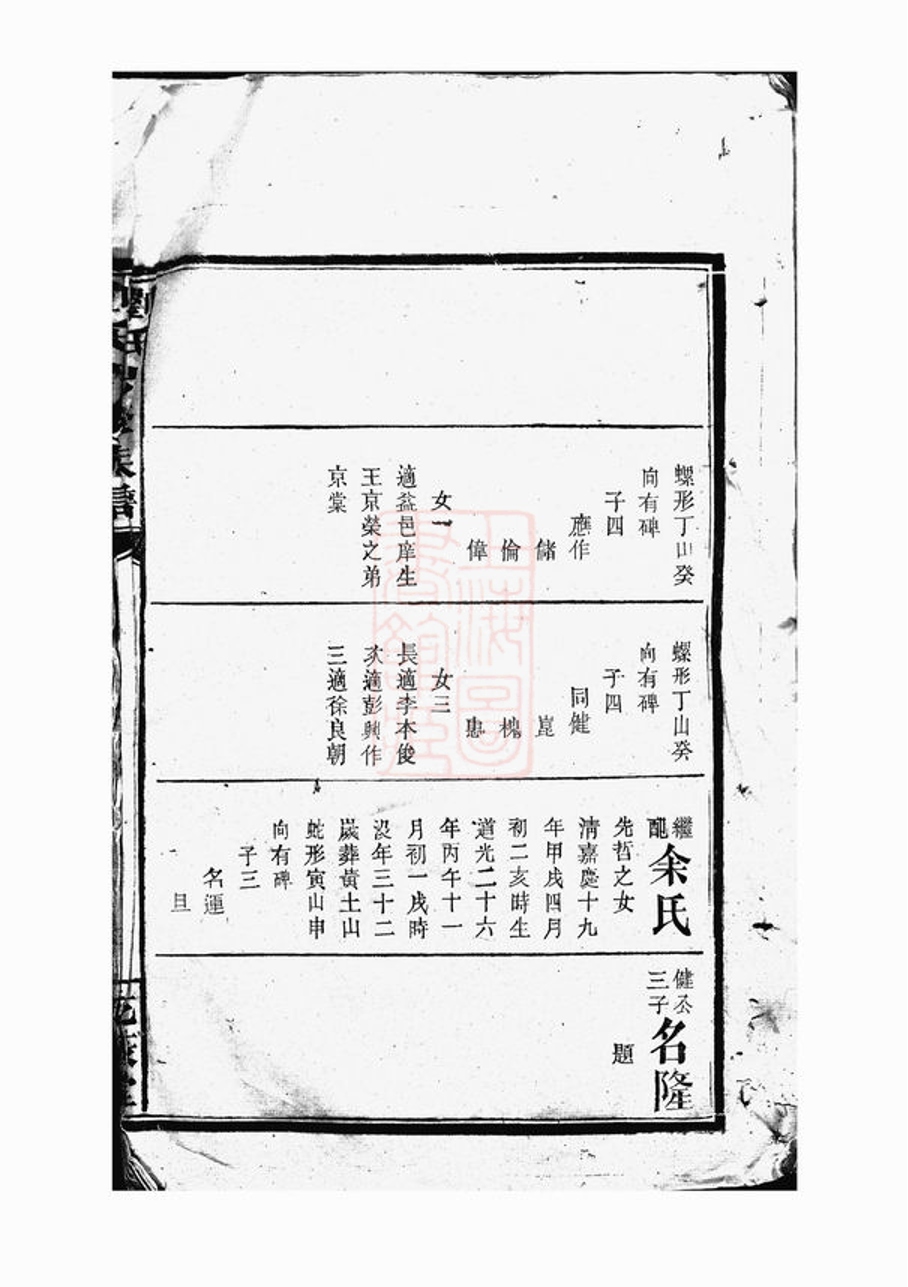 螺形丁山癸
向有碑
子四
應作
儲
倫
偉
女一
適益邑庠生
王京榮之弟
京棠
螺形丁山癸
向有碑
子四
同健
崑
槐
惠
女三
長適李本俊
次適彭興作
三適徐良朝
繼配余氏
先哲之女
清嘉慶十九
年甲戌四月
初二亥時生
道光二十六
年丙午十一
月初一戌時
沒年三十二
歲葬黃土山
蛇形寅山申
向有碑
子三
名運
旦
健公三子名隆
題
上海圖